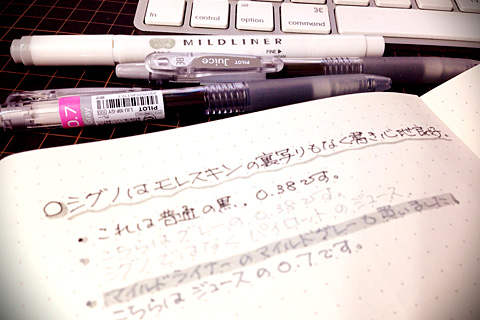 fn control option
MILDLINER
FINE
PILOT Juice
0.7 PILOT
○シグノはモレスキンの裏写りもなく書き心地良好。
・これは普通の黒。0.38です。
・こちらはグレーの0.38です。
シグノではなくパイロットのジュース。
・マイルドライナーのマイルドグレーも買いました!
・こちらはジュースの0.7です。